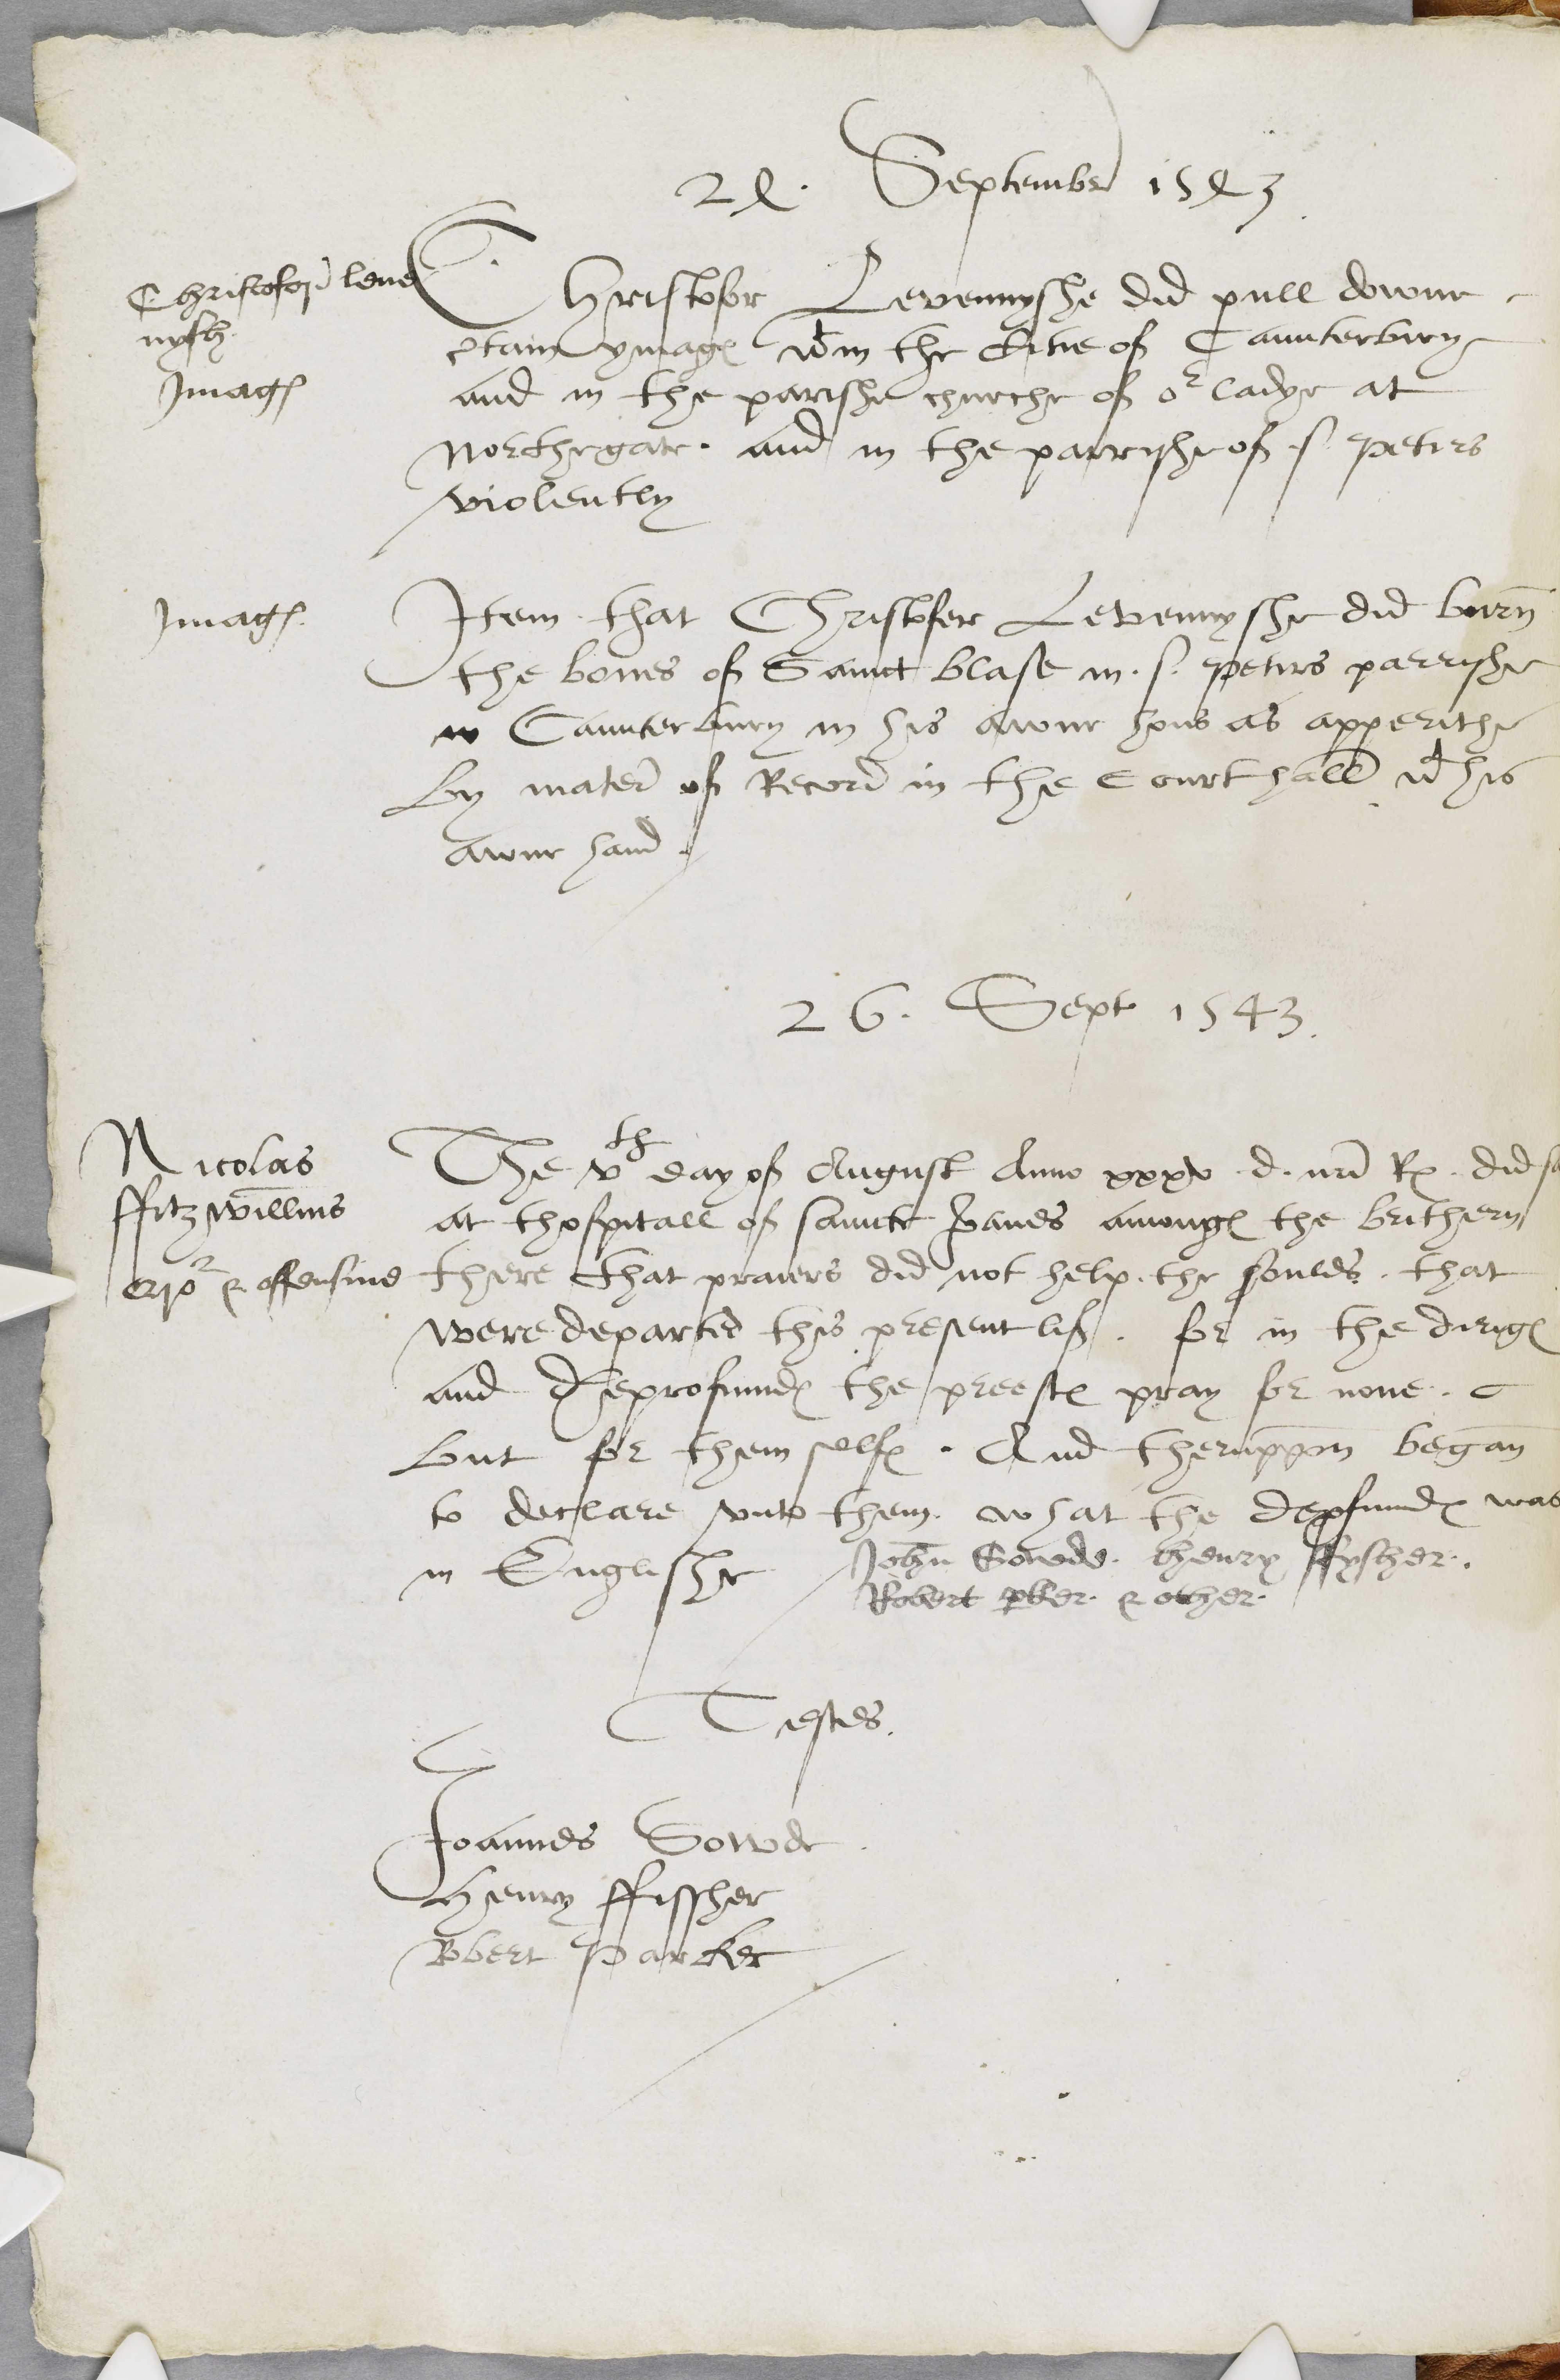 24. September 1543
Christofor Leue
nysh
Imag
Christofor Levennyshe did pull downe
ctain ymag wtin the Citie of Caunterbury
and in the parishe churche of or ladye at
Northegate. and in the parryshe of .s. peters
violently
Imag
Item that Christofer Levennyshe did burn
the bones of Sainct blase in .s. peters parrishe
in Caunterbury in his awne hous as apperithe
by mater of Record in the Courthall wt his
awne hand.
26. Sept 1543.
Nicolas
ffitzwillms
& offensiue
The vth day of August Anno xxxv d. nri R. did sa
at thospitall of saincte among the brethern
there that praiers did not help the soules. that
were departed this present lif. for in the dirig
and Deprofund the preest pray for none.
but for them self. And theruppon began
to declare vnto them. what the depfund was
in Englishe
John Sowde. henry ffyscher.
Robert pker. & other.
Testes.
Joannes Sowde.
Henry ffisscher
Robert Parker